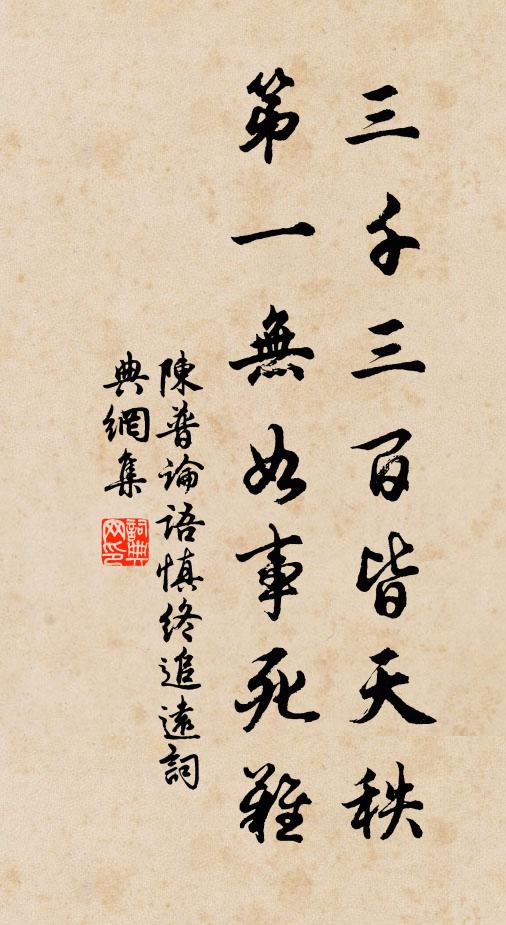 三千三百皆天秩
第一無如事死難
陳普論語慎終追遠詞
典網集
詞典
网印